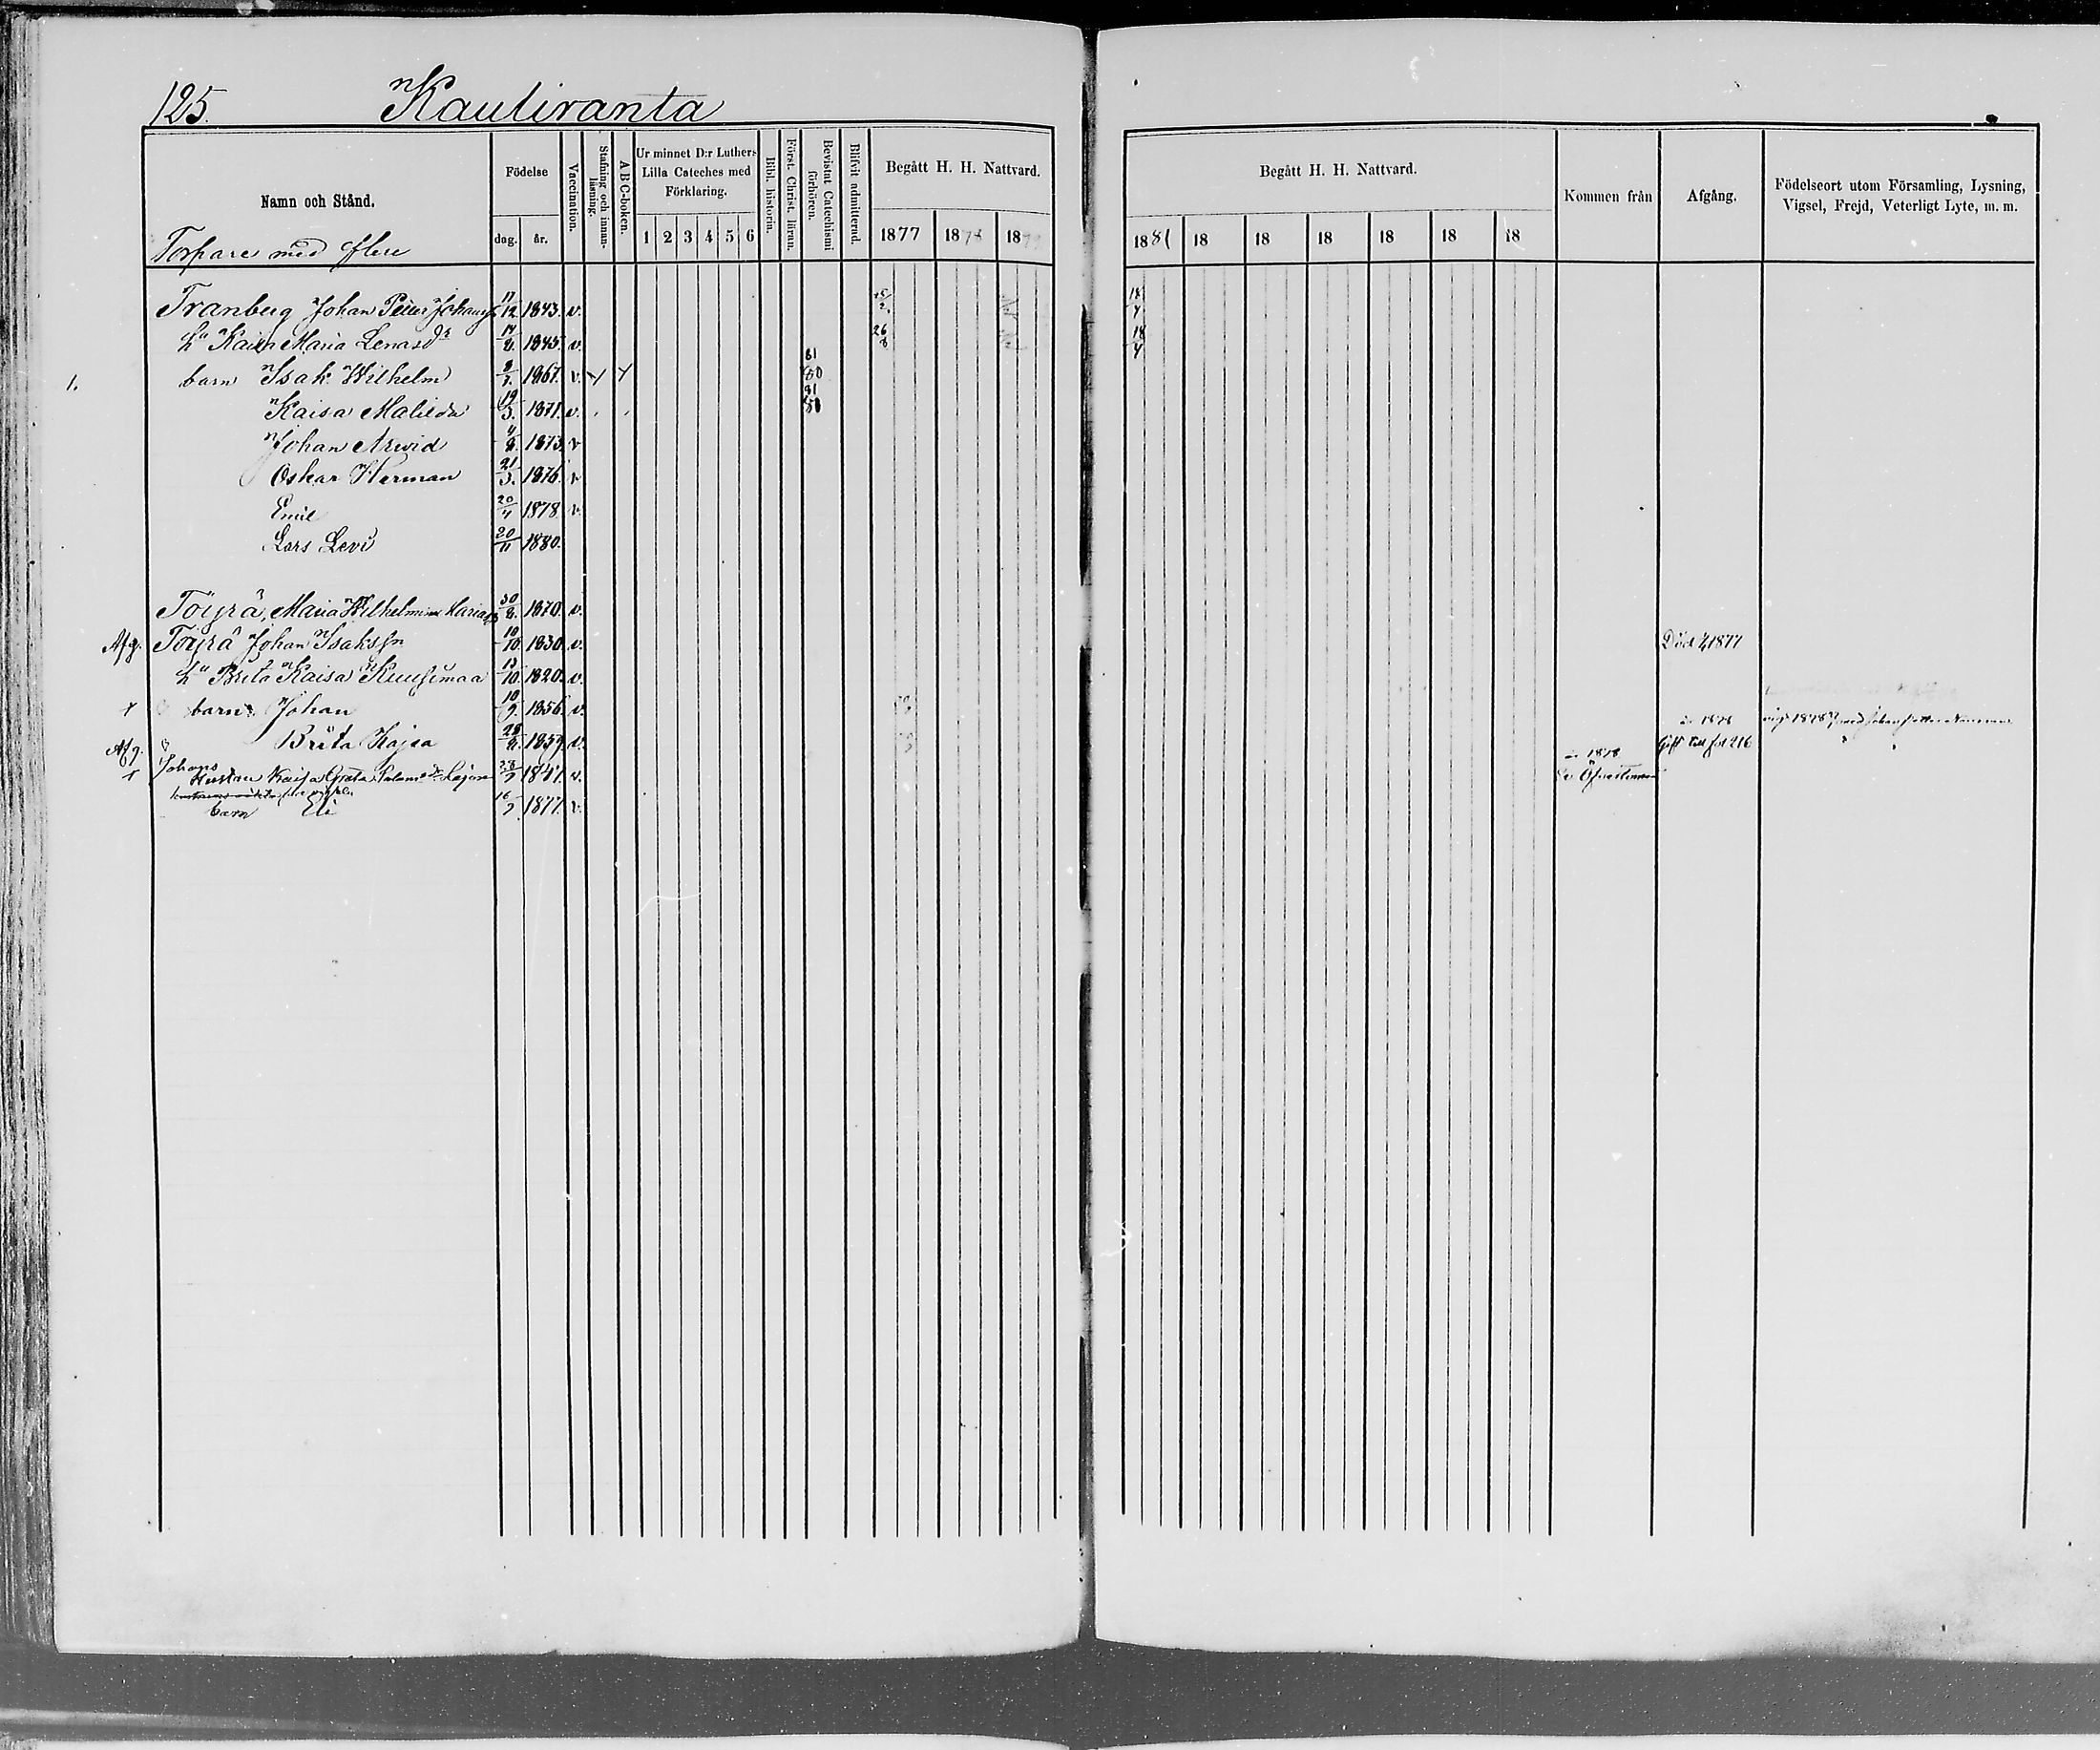 125. Kauliranta
Namn och Stånd.
Torpare med flere
Födelse
dag. år.
Vaccination.
Stafning och innanläsning.
ABC-boken.
Ur minnet D:r Luthers
Lilla Cateches med
Förklaring.
1 2 3 4 5 6
Bibl. historia.
Först. Christ. läran.
Bevistat Catechismi förhören.
Blifvit admitterad.
Begått H. H. Nattvard.
1877 1878 1879
Begått H. H. Nattvard.
1881 18 18 18 18 18 18
Kommen från
Afgång.
Födelseort utom Församling, Lysning,
Vigsel, Frejd, Veterligt Lyte, m. m.
Tranberg Johan Petter 17/12. 1843. v. 18/4
hu Kaisa Maria Lenasdr 14/8. 1845. v. 26/8 18/4
1. barn Isak Wilhelm 1867. v. 81 80
Kaisa Matilda 19/3. 1871. v. 81 80
Johan Arwid 4/8. 1873. v
Oskar Herman 21/3. 1876. v
Emil 20/4 1878 v.
Lars Levi 20/11 1880.
Töyrä, Maria Wilhelmina 30/8. 1870. v.
Afg. Töyrä Johan Isaksson 10/10. 1830. v. Död 1877
hu Brita Kaisa Kuusimaa 13/10. 1820. v.
x barn. Johan 10/9. 1856. v. 1878
Afg. Brita Kajsa 1859. v. 1878 Gift till fol 216
x Johans Hustru Kaisa Greta 1841. v.
barn Eli 16/9 1877. v.